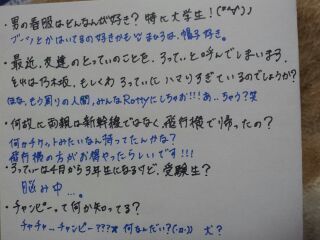 ・男の春服はどんなんが好き？特に大学生！(*^^*)
ブーツとかはいてるの好きかも♡ まひろは、帽子好き。
・最近、友達のとっていのことを、ろってぃと呼んでしまいます。
それは乃木坂、もしくわ、ろってぃにハマりすぎているのでしょうか？
ほな、もう周りの人間、みんなRottyにしちゃお!!!あ、ちゃう？笑
・何故に両親は新幹線ではなく、飛行機で帰ったの？
何かチケットみたいなん持ってたんかな？
飛行機の方がお得やったらしいです!!!
・ろってぃーは4月から3年生になるけど、受験生？
脳み中…。
・チャンピーって何か知ってる？
チャチャ…チャンピー???× 何なんだい？(・ロ・)) 犬？